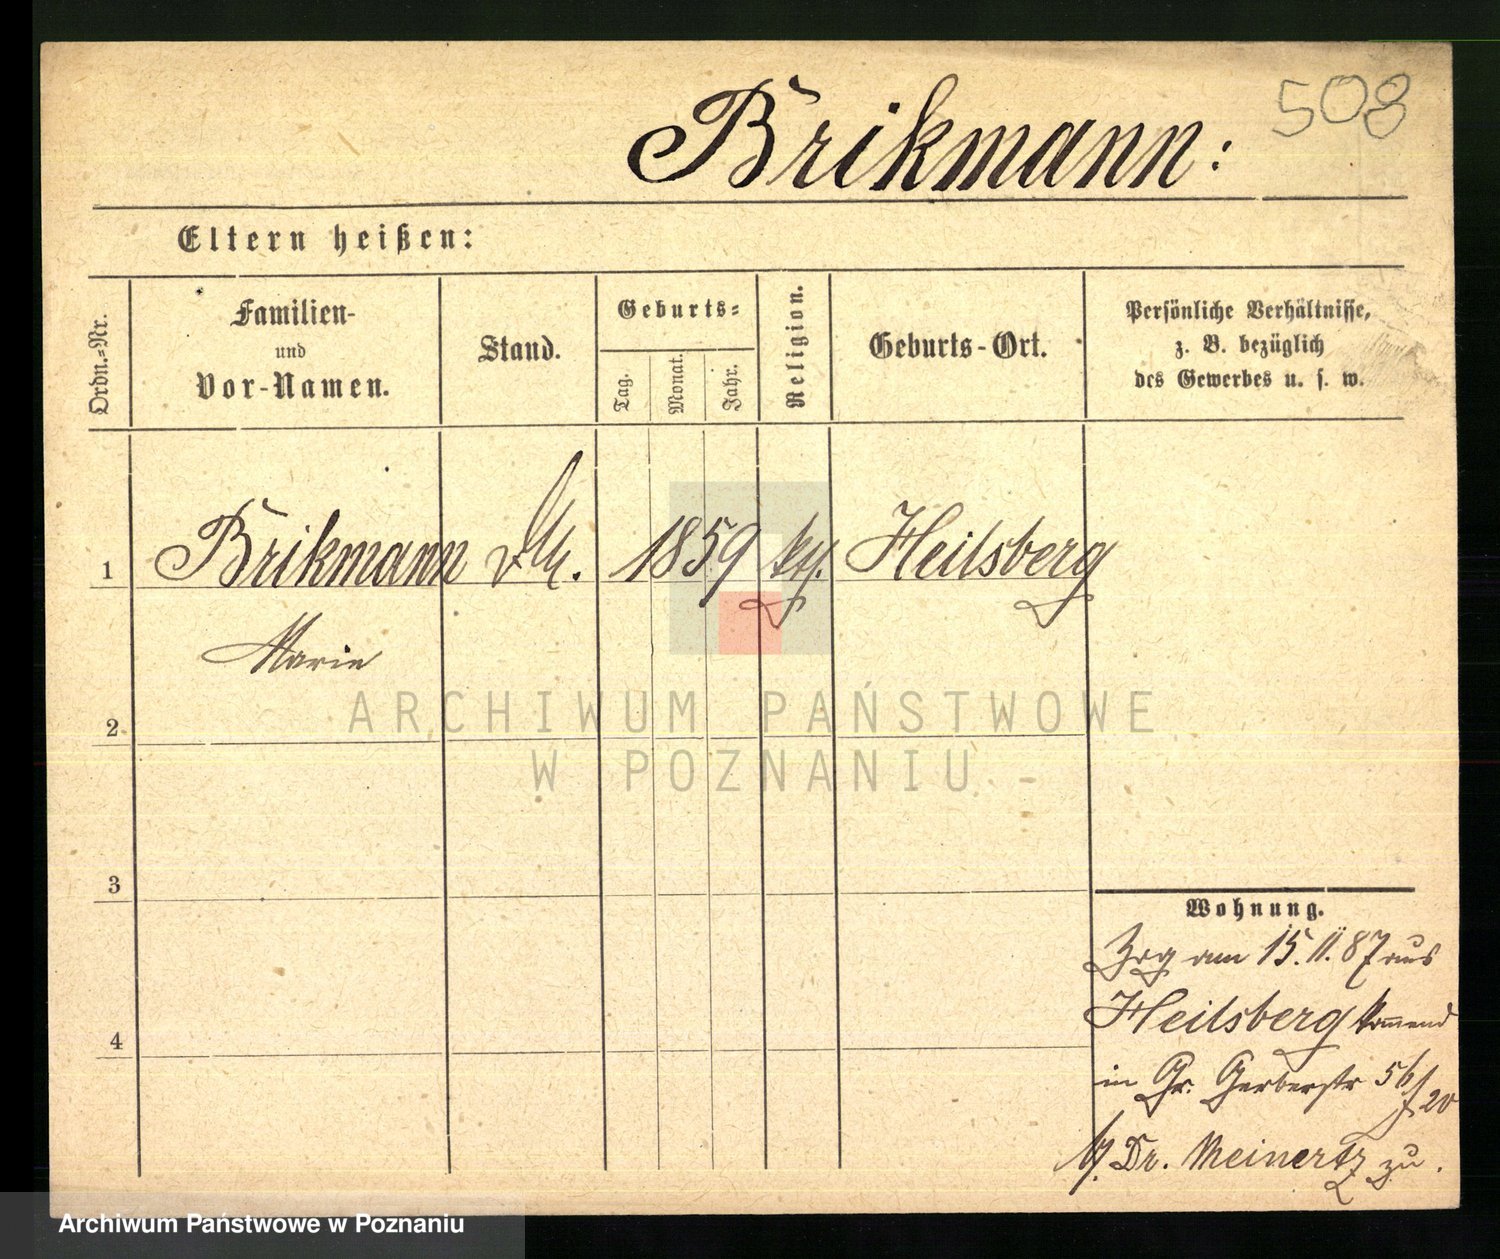 Brikmann:
508
Eltern heißen:
Ordn.-Nr.
Familien-
und
Vor-Namen.
Stand.
Geburts-
Tag.
Monat.
Jahr.
Religion.
Geburts-Ort.
Persönliche Verhältnisse,
z. B. bezüglich
des Gewerbes u. s. w.
1 Brikmann 1859 kth. Heilsberg
Marie
2
3
4
ARCHIWUM PAŃSTWOWE
W POZNANIU
Wohnung.
Zog am 15.11.87 aus
Heilsberg kommend
in Gr. Gerberstr 56/20
b/ Dr. Meinertz zu.
Archiwum Państwowe w Poznaniu